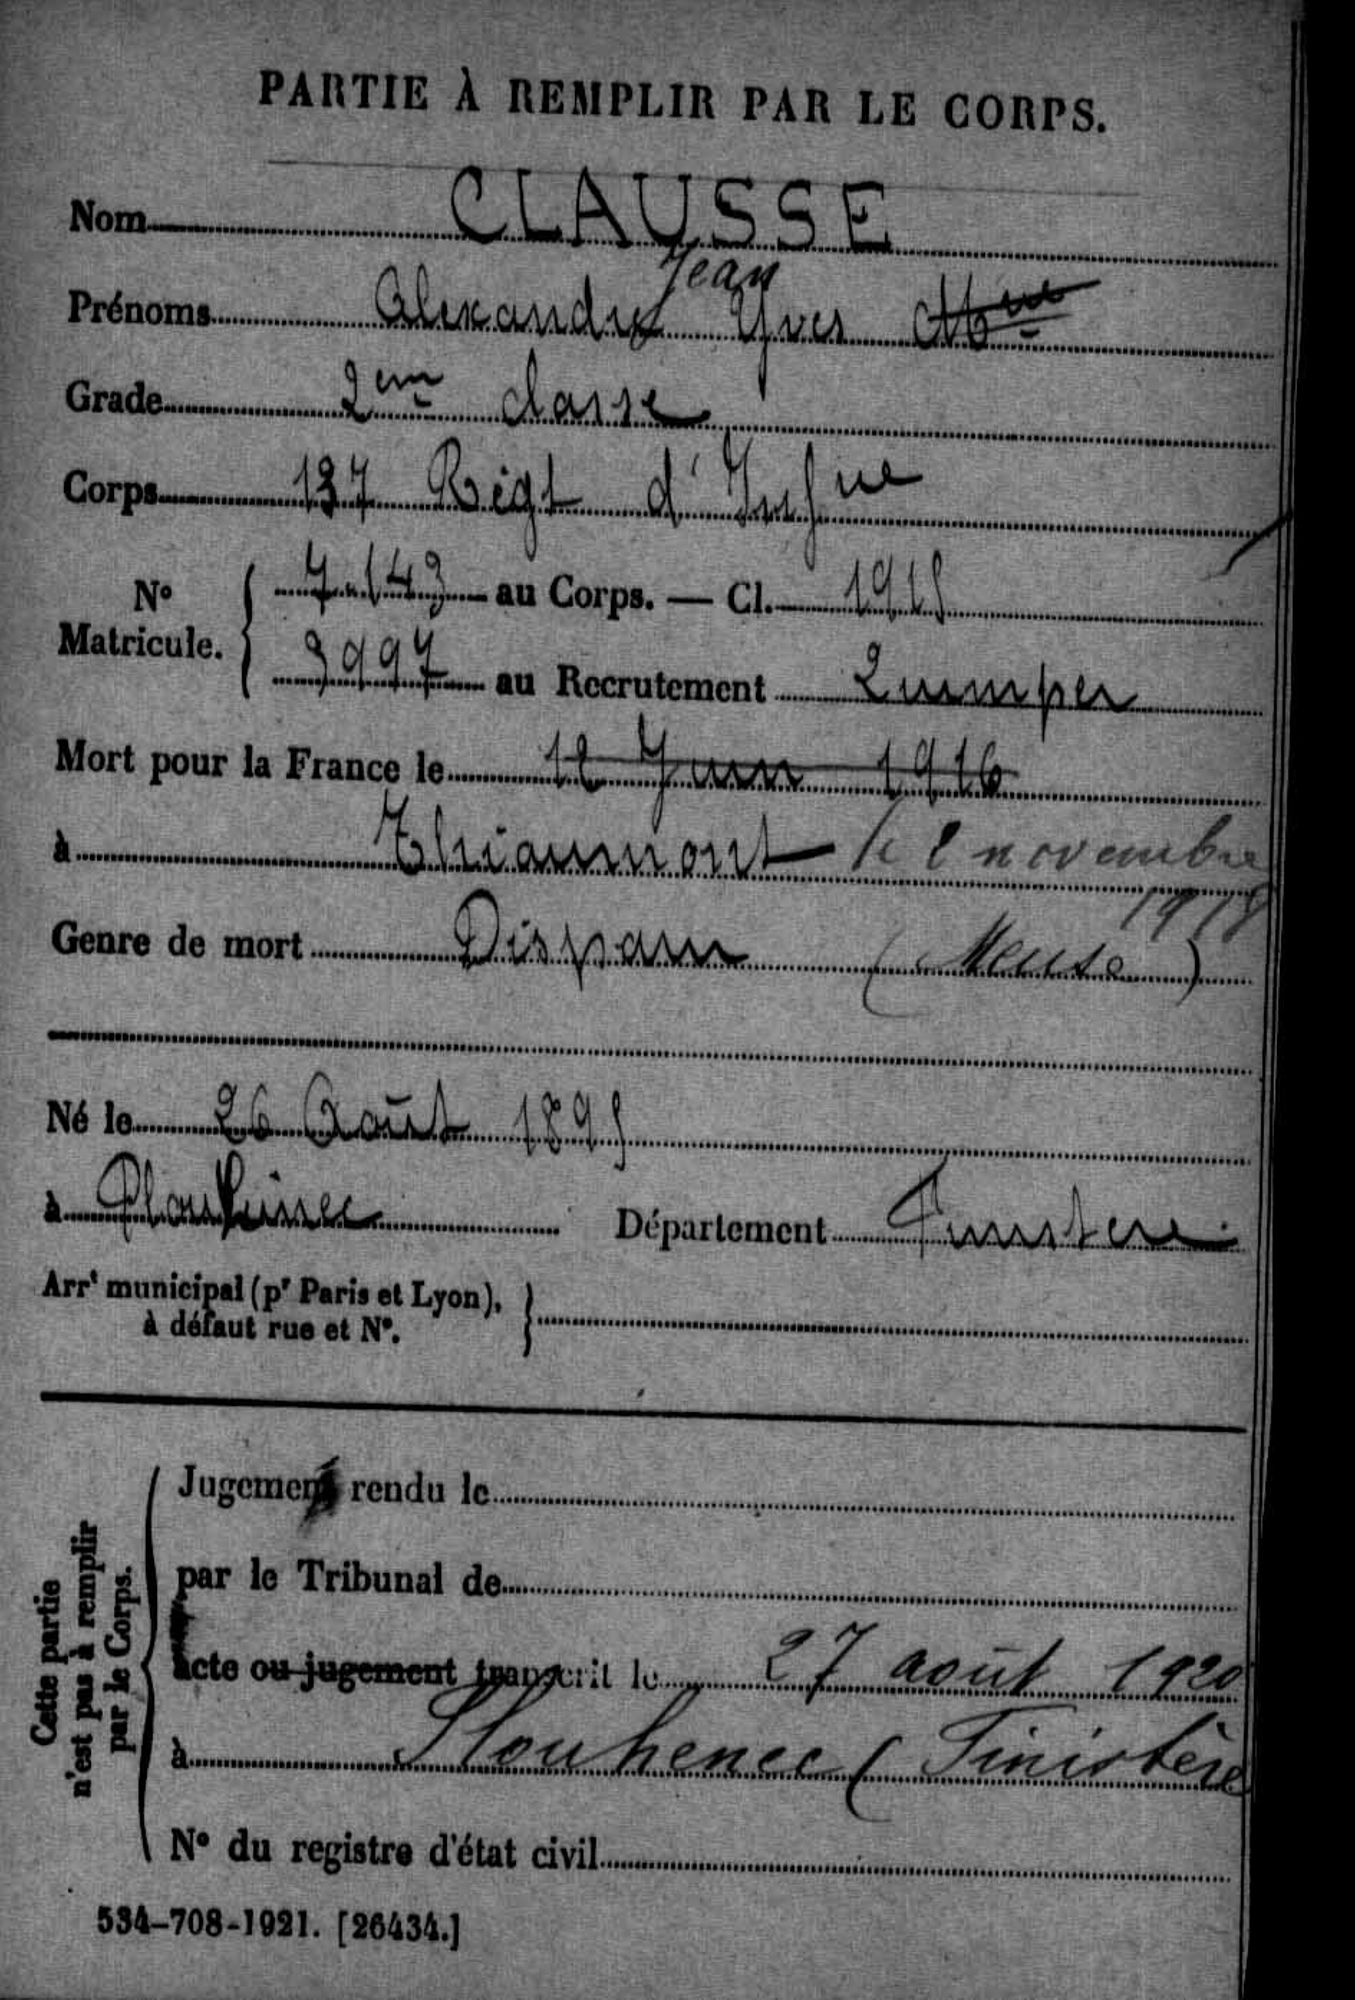 PARTIE À REMPLIR PAR LE CORPS.
Nom CLAUSSE
Jean
Prénoms Alexandre Yves Mie
Grade 2em classe
Corps 137 Régt d'Infrie
N° Matricule. 7.143 au Corps. — Cl. 1915
3997 au Recrutement Quimper
Mort pour la France le 12 Juin 1916
à Thiaumont le 2 novembre
1918
Genre de mort Disparu (Meuse)
Né le 26 Août 1895
à Plouhinec Département Finistere
Arrt municipal (pr Paris et Lyon),
à défaut rue et N°.
Cette partie
n'est pas à remplir
par le Corps.
Jugement rendu le
par le Tribunal de
acte ou jugement transcrit le 27 août 1920
à Plouhenec (Finistère
N° du registre d'état civil
534-708-1921. [26434.]